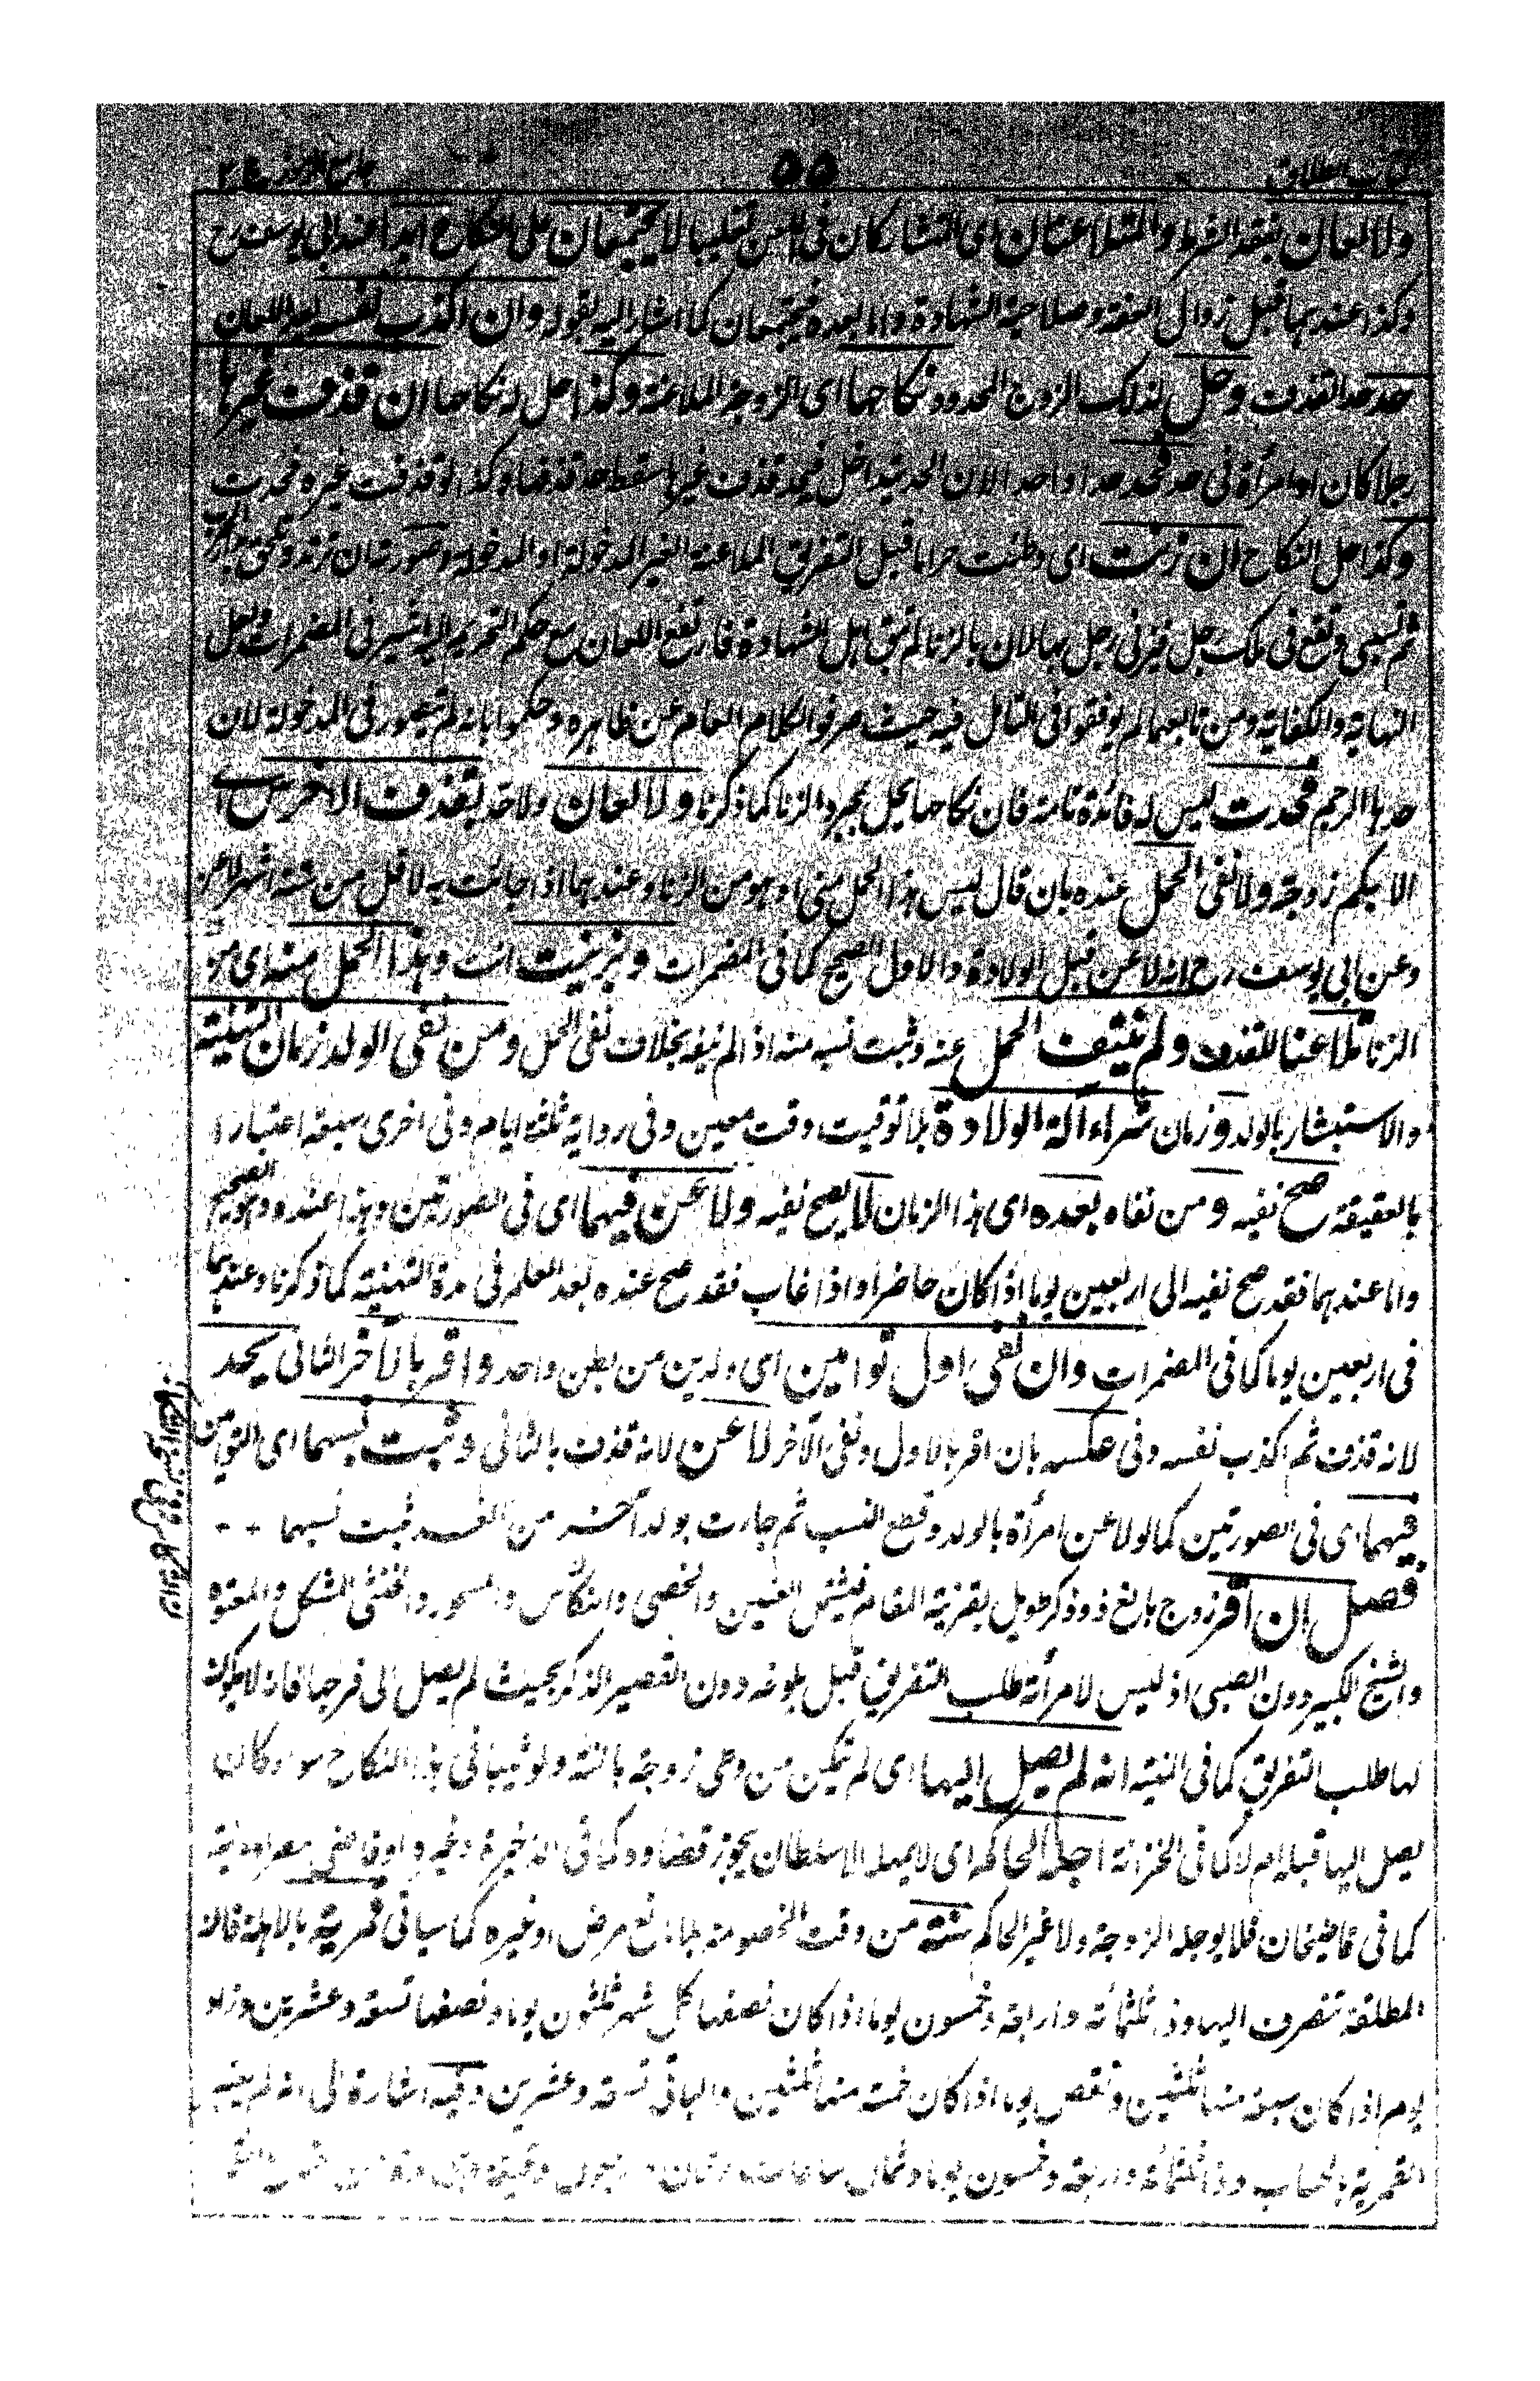 كتاب الطلاق ٥٥ جامع الرموز ج ٢
ولا لعان بفقد الشرط والمتلاعنان اى المتشاركان فى اللعن تغليبا لا يجتمعان على النكاح ابدا عند ابى يوسف رح
وكذا عندهما قبل زوال الصفة وصلاحية الشهادة واما بعده فيجتمعان كما اشار اليه بقوله وان اكذب نفسه بعد اللعان
حد حد القذف وحل لذلك الزوج المحدود نكاحها اى الزوجة الملاعنة وكذا حل له نكاحها ان قذف غيرها
رجلا كان او امرأة فى حد فحد حدا واحدا لان الحد يتداخل فيحد قذف غيرها سقط حد قذفها وكذا لو قذفت غيره فحدت
وكذا حل النكاح ان زنت اى وطئت حراما قبل التفريق الملاعنة الغير المدخولة او المدخولة وصورته ان ترتد وتلحق بدار الحرب
ثم تسبى وتقع فى ملك رجل فيزنى رجل بها لان بالزنا لم تبق اهل الشهادة فارتفع اللعان مع حكم التحريم اليه اشير فى المضمرات ولعل
النهاية والكفاية ومن تابعهما لم يوفقوا فى التأمل فيه حيث صرفوا الكلام العام عن ظاهره وحكموا بانه لم يتصور فى المدخولة لان
حدها الرجم فحدت ليس له فائدة تامة فان نكاحها يحل بمجرد الزنا كما ذكرنا ولا لعان ولا حد بقذف الاخرس اى
الابكم زوجة ولا نفى الحمل عنده بان قال ليس هذا الحمل منى او هو من الزنا وعندهما اذا جائت به لاقل من ستة اشهر لاعن
وعن ابى يوسف رح انه لاعن قبل الولادة والاول الصحيح كما فى المضمرات وبزنيت انت وهذا الحمل منه اى من
الزنا تلاعنا للقذف ولم ينتف الحمل عنه وثبت نسبه منه اذا لم ينفه بخلاف نفى الحمل ومن نفى الولد زمان التهنية
والاستبشار بالولد وزمان شراء آلة الولادة بلا توقيت وقت معين وفى رواية ثلثة ايام وفى اخرى سبعة اعتبارا
بالعقيقة صح نفيه ومن نفاه بعده اى هذا الزمان لا يصح نفيه ولاعن فيهما اى فى الصورتين وهذا عنده وهو الصحيح
واما عندهما فقد صح نفيه الى اربعين يوما اذا كان حاضرا واذا غاب فقد صح عنده بعد العلم فى مدة التهنية كما ذكرنا وعندهما
فى اربعين يوما كما فى المضمرات وان نفى اول توأمين اى ولدين من بطن واحد واقر بالآخر الثانى يحد
لانه قذف ثم اكذب نفسه وفى عكسه بان اقر بالاول ونفى الآخر لاعن لانه قذف بالثانى وثبت نسبهما اى التوأمين
فيهما اى فى الصورتين كما لو لاعن امرأة بالولد وقطع النسب ثم جاءت بولد آخر من الغد ثبت نسبهما
فصل ان اقر زوج بالغ ذو ذكر طويل بقرينة المقام فيشمل العنين والخصى والشكاس والمسحور والخنثى المشكل والمعتوه
والشيخ الكبير دون الصبى اذ ليس لامرأته طلب التفريق قبل بلوغه ودون القصير الذكر بحيث لم يصل الى فرجها فانه لا يكون
لها طلب التفريق كما فى المنية انه لم يصل اليها اى لم يتمكن من وطى زوجة بالغة ولو ثيبا فى هذا النكاح سواء كان
يصل اليها قبله ام لا كما فى الخزانة اجله الحاكم اى لا يمهله الا سلطان يجوز قضاؤه كما فى الذخيرة وغيره او قاضى مصر او مدينة
كما فى قاضيخان فلا يوجله الزوجة ولا غير الحاكم سنة من وقت الخصومة بلا مانع مرض او غيره كما سيأتى قمرية بالاهلة فان
المطلقة تنصرف اليها وذا ثلثمائة واربعة وخمسون يوما اذا كان نصفها كل شهر ثلثون يوما ونصفها تسعة وعشرين وزاد
يوم اذا كان سبعة منها ثلثين ونقص يوما اذا كان خمسة منها ثلثين والباقى تسعة وعشرين وفيه اشارة الى انه لم يعتبر
القمرية بالحساب وذا ثلثمائة واربعة وخمسون يوما وثمان ساعات